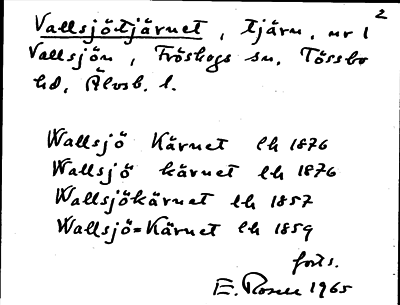 2
Vallsjötjärnet, tjärn, nr 1
Vallsjön, Fröskogs sn, Tössbo
hd, Älvsb. l.
Wallsjö Kärnet lk 1876
Wallsjö kärnet lk 1876
Wallsjökärnet lk 1857
Wallsjö=Kärnet lk 1859
forts.
E. Rosell 1965